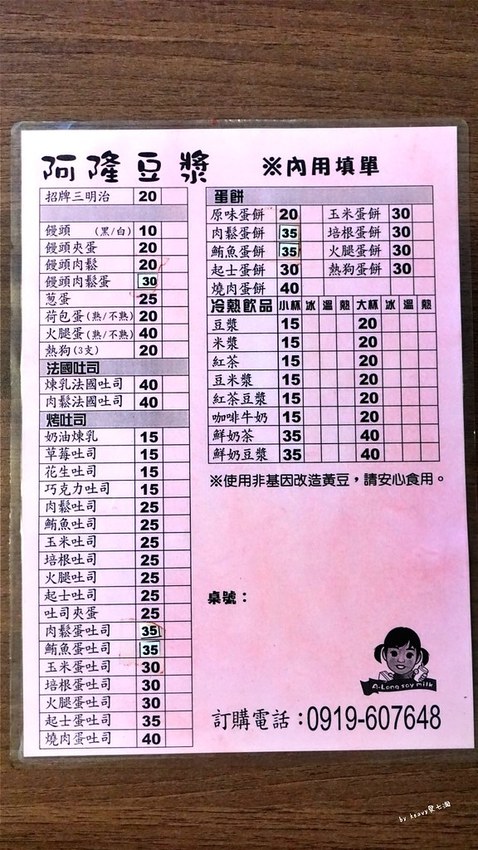 阿隆豆漿 ※內用填單
招牌三明治 20
饅頭 (黑/白) 10
饅頭夾蛋 20
饅頭肉鬆 20
饅頭肉鬆蛋 30
蔥蛋 25
荷包蛋(熟/不熟) 20
火腿蛋(熟/不熟) 40
熱狗(3支) 20
法國吐司
煉乳法國吐司 40
肉鬆法國吐司 40
烤吐司
奶油煉乳 15
草莓吐司 15
花生吐司 15
巧克力吐司 15
肉鬆吐司 25
鮪魚吐司 25
玉米吐司 25
培根吐司 25
火腿吐司 25
起士吐司 25
吐司夾蛋 25
肉鬆蛋吐司 35
鮪魚蛋吐司 35
玉米蛋吐司 30
培根蛋吐司 30
火腿蛋吐司 30
起士蛋吐司 35
燒肉蛋吐司 40
蛋餅
原味蛋餅 20 玉米蛋餅 30
肉鬆蛋餅 35 培根蛋餅 30
鮪魚蛋餅 35 火腿蛋餅 30
起士蛋餅 30 熱狗蛋餅 30
燒肉蛋餅 40
冷熱飲品 小杯 冰 溫 熱 大杯 冰 溫 熱
豆漿 15 20
米漿 15 20
紅茶 15 20
豆米漿 15 20
紅茶豆漿 15 20
咖啡牛奶 15 20
鮮奶茶 35 40
鮮奶豆漿 35 40
※使用非基因改造黃豆，請安心食用。
桌號：
A-Long soy milk
訂購電話：0919-607648